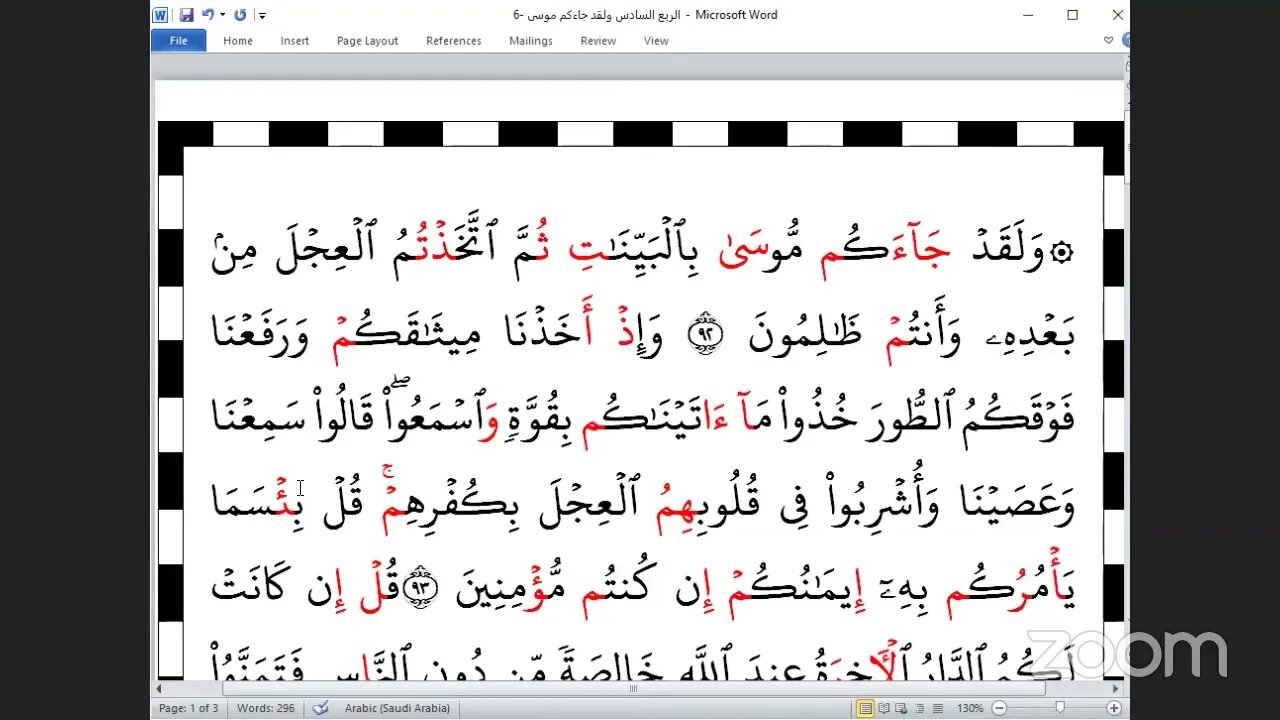 الربع السادس ولقد جاءكم موسى -6 - Microsoft Word
File Home Insert Page Layout References Mailings Review View
۞ وَلَقَدۡ جَآءَكُم مُّوسَىٰ بِٱلۡبَيِّنَـٰتِ ثُمَّ ٱتَّخَذۡتُمُ ٱلۡعِجۡلَ مِنۢ
بَعۡدِهِۦ وَأَنتُمۡ ظَـٰلِمُونَ ٩٢ وَإِذۡ أَخَذۡنَا مِيثَـٰقَكُمۡ وَرَفَعۡنَا
فَوۡقَكُمُ ٱلطُّورَ خُذُواْ مَآ ءَاتَيۡنَـٰكُم بِقُوَّةٖ وَٱسۡمَعُواْۖ قَالُواْ سَمِعۡنَا
وَعَصَيۡنَا وَأُشۡرِبُواْ فِي قُلُوبِهِمُ ٱلۡعِجۡلَ بِكُفۡرِهِمۡۚ قُلۡ بِئۡسَمَا
يَأۡمُرُكُم بِهِۦٓ إِيمَـٰنُكُمۡ إِن كُنتُم مُّؤۡمِنِينَ ٩٣ قُلۡ إِن كَانَتۡ
لَكُمُ ٱلدَّارُ ٱلۡأَخِرَةُ عِندَ ٱللَّهِ خَالِصَةٗ مِّن دُونِ ٱلنَّاسِ فَتَمَنَّوُاْ
zoom
Page: 1 of 3 Words: 296 Arabic (Saudi Arabia) 130%